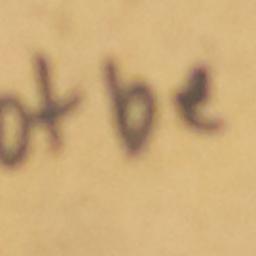 ot be